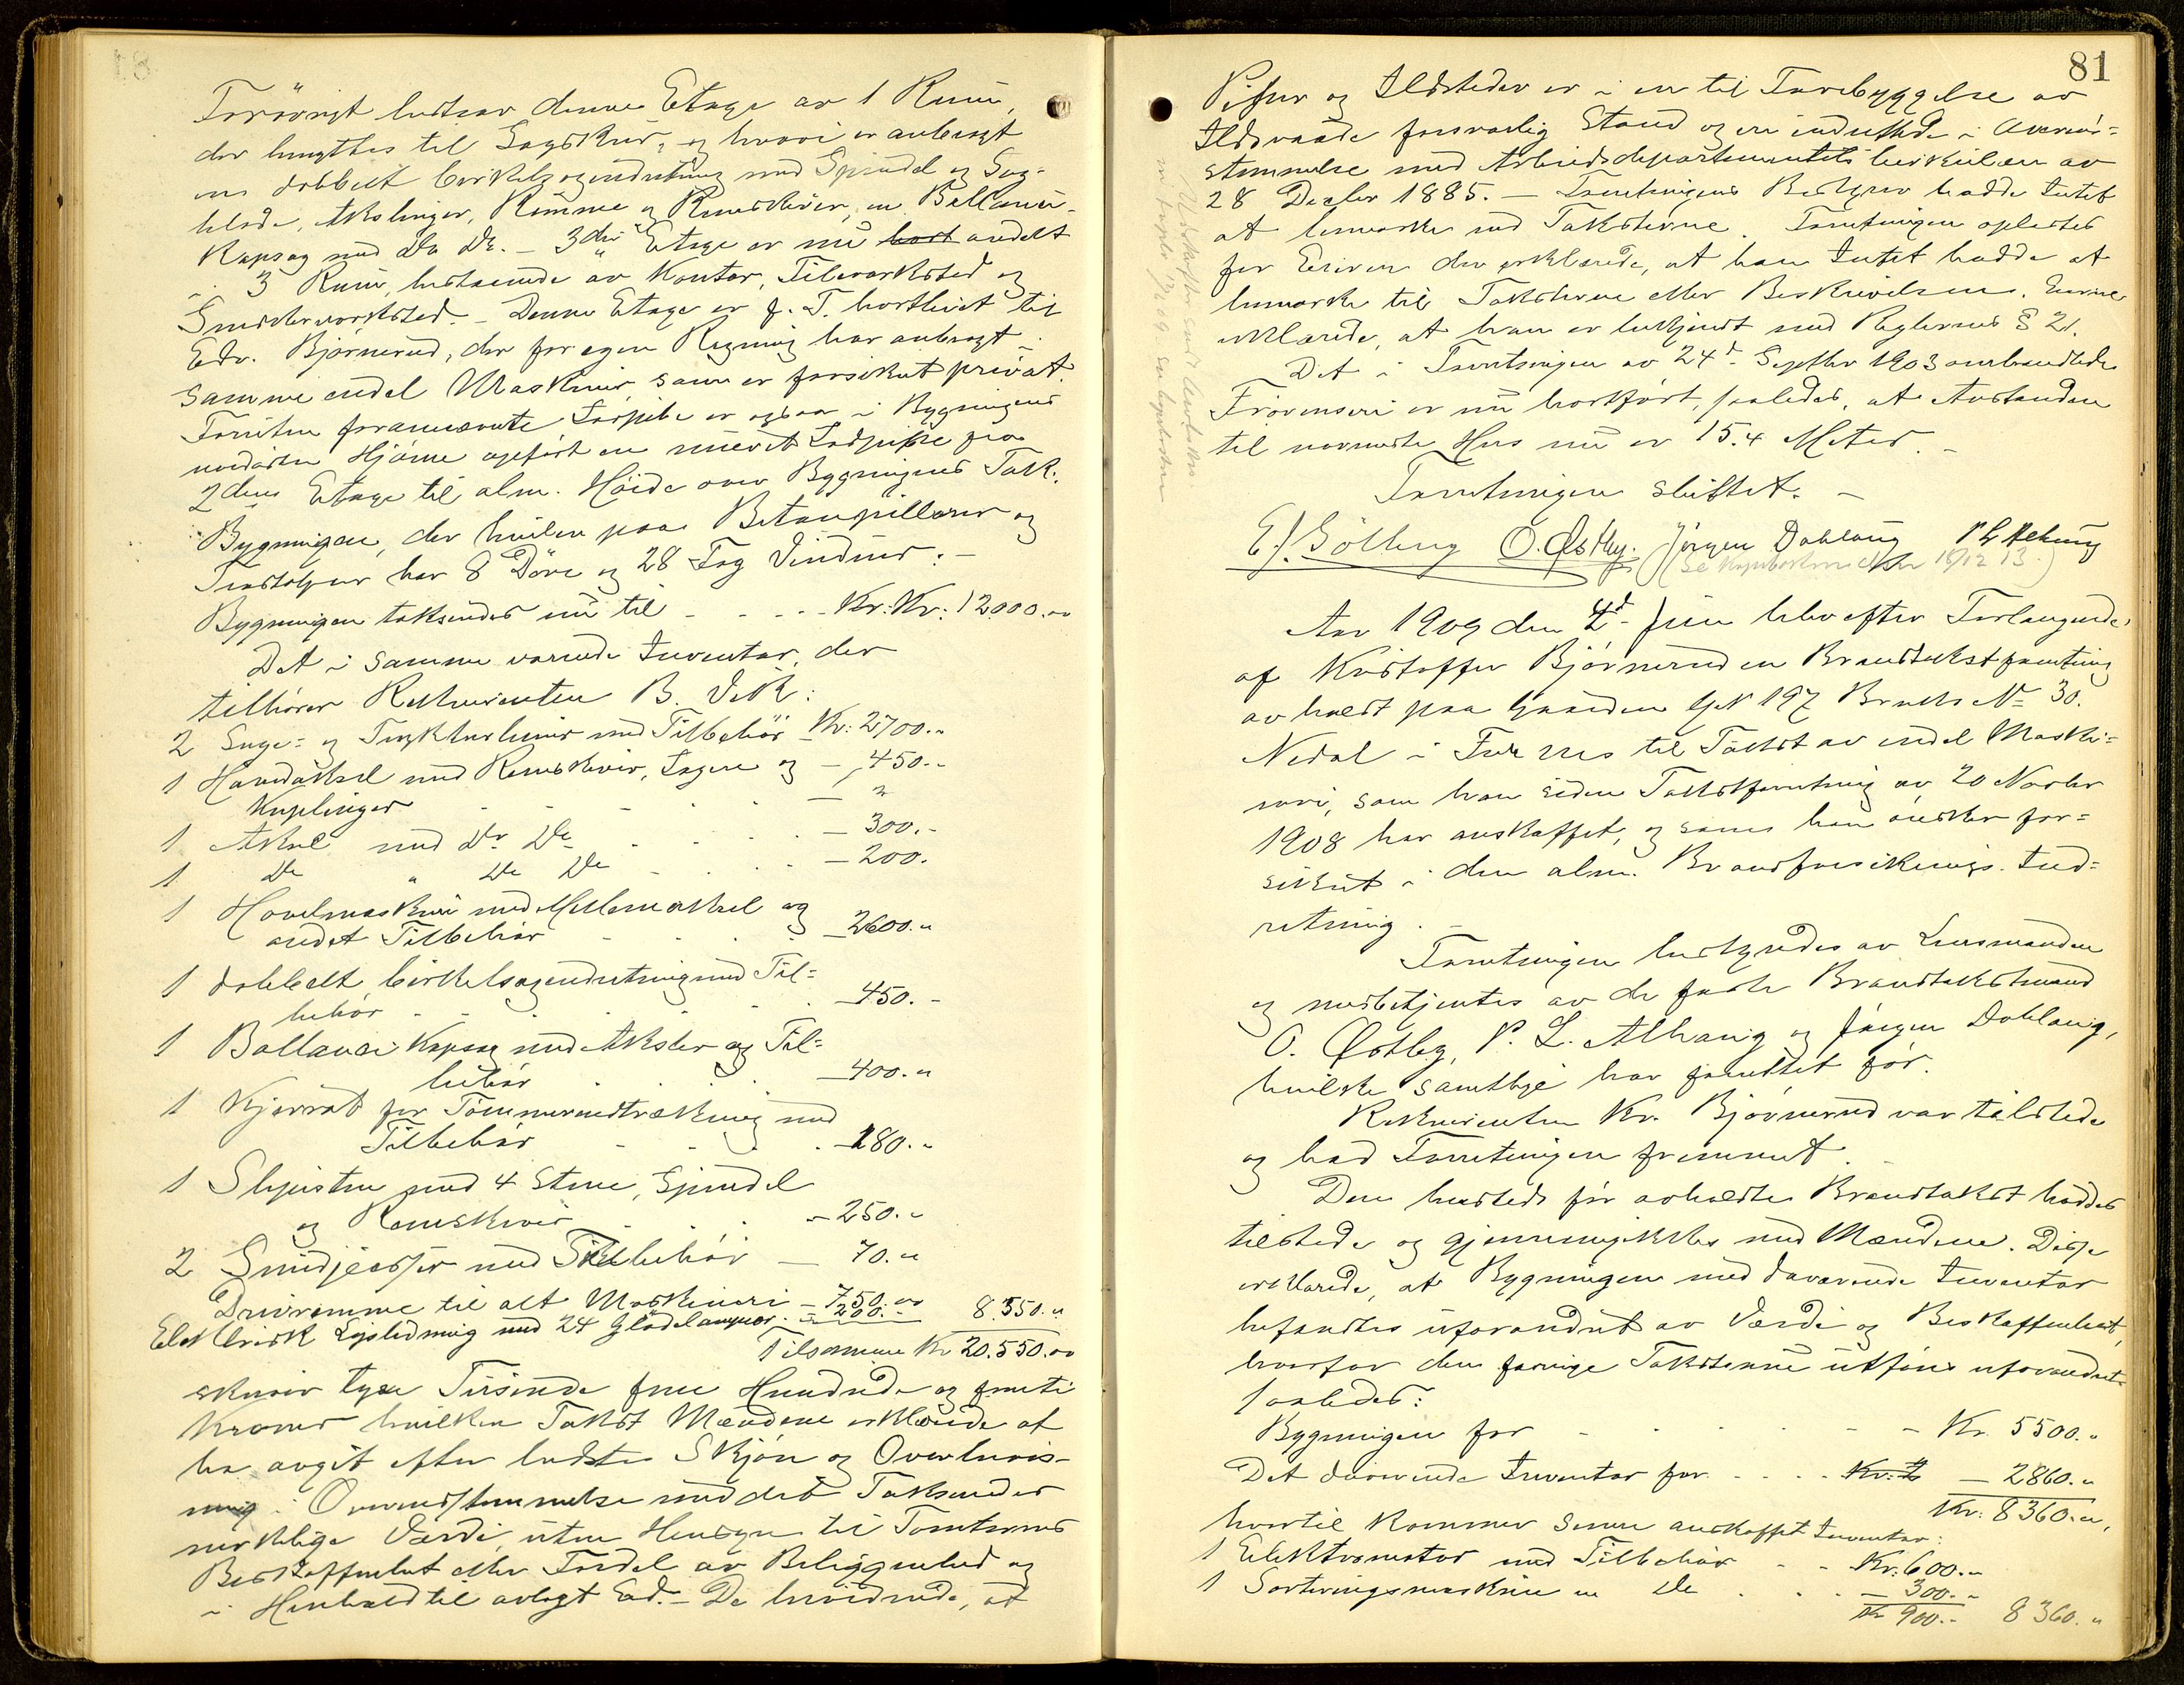 Forøvrigt bestaar denne Etage av 1 Rum,
der benyttes til Sagskur, og hvori er anbragt
en dobbelt Cirkelsagindretning med Spindel og Sag-
blade, Akslinger, Remme og Remskiver, en Ballance
Kapsag med Do Do. – 3die Etage er nu bort andelt
i 3 Rum, bestaaende av Kontor, Fileværksted og
Snedkerværksted. – Denne Etage er p. T. bortleiet til
Edv. Bjørnerud, der for egen Regning har anbragt i
samme endel Maskiner, som er forsikret privat.
Foruten forannævnte er ogsaa i Bygningens
nordøstre Hjørne opført en muret fra
2den Etage til alm. Høide over Bygningens Tak.
Bygningen, der hviler paa Betonpillarer og
Træstolper har 8 Døre og 28 Fag Vinduer. –
Bygningen takseredes nu til - - - - Kr. Kr. 12000.00
Det i samme værende Inventar, der
tilhører Rekvirenten B. Vik:
2 Suge- og Trykturbiner med Tilbehør Kr. 2700.00
1 Hovedaksel med Remskiver, Lagere og — 450.-
Kuplinger - - - — "
1 Aksel med Do Do - - — 300.-
1 Do " Do Do - - — 200.
1 Høvelmaskin med Mellemaksel og
andet Tilbehør - - - — 2600.00
1 dobbelt Cirkelsagindretning med Til-
behør - - - — 450.-
1 Ballance Kapsag med Aksler og Til-
behør - - - — 400.00
1 Kjørrat for Tømmerindtrækning med
Tilbehør - - - — 180.00
1 Slipesten med 4 Stene, Spindel
og Remskiver - - - 250.-
2 Smidjeesser med Tilbehør — 70.00
Drivremme til alt Maskineri — 750.00
Elektrisk Lysledning med 24 Glødelamper. — 200.00 8.550.00
Tilsammen Kr 20.550.00
skriver tyve Tusinde fem Hundrede og femti
Kroner hvilken Takst Mændene erklærede at
ha avgit efter bedste Skjøn og Overbevis-
ning i Overensstemmelse med det Takseredes
virkelige Værdi, uten Hensyn til Tomternes
Beskaffenhet eller Fordel av Beliggenhed og
i Henhold til avlagt Ed. – De bevidnede, at
81
Piper og Ildsteder er i en til Forebyggelse av
Ildsvaade forsvarlig Stand og er indrettede i Overens-
stemmelse med Arbeidsdepartementets Cirkulære av
28 Decbr 1885. — Forretningens Bestyrer hadde Intet
at bemærke ved Taksterne. Forretningen oplæstes
for Eieren der erklærede, at han Intet hadde at
bemærke til Taksterne eller Beskrivelsen. Eieren
erklærede, at han er bekjendt med Reglernes § 21.
Det i Forretningen av 24de Septbr 1903 omhandlede
er nu bortført, saaledes, at Avstanden
til nærmeste Hus nu er 15.4 Meter. –
Forretningen sluttet. –
E. Sölberg O. Østby. Jörgen Dobloug P L Alhaug
Aar 1909 den 4de Juni blev efter Forlangende
af Kristoffer Bjørnerud en Brandtakstforretning
avholdt paa Gaarden GN 197 Bruks No 30.
Nedal i Furnes til Takst av endel Maski-
neri, som han siden Takstforretning av 20 Novbr
1908 har anskaffet, og som han ønsker for-
sikret i den alm. Brandforsikrings Ind-
retning. –
Forretningen bestyredes av Lensmanden
og medbetjentes av de faste Brandtakstmænd
O. Østby, P. L. Alhaug og Jörgen Dobloug,
hvilke samtlige har forrettet før.
Rekvirenten Kr. Bjørnerud var tilstede
og bad Forretningen fremmet.
Den hersteds før avholdte Brandtakst haddes
tilstede og gjennemgikkes med Mændene. Disse
erklærede, at Bygningen med daværende Inventar
befandtes uforandret av Værdi og Beskaffenhet,
hvorfor den forrige Takstsum utføres uforandret
saaledes:
Bygningen for - - - - Kr. 5500.00
Det daværende Inventar for - - - Kr. 2 — 2860.00
Kr: 8360.00,
hvortil kommer senere anskaffet Inventar:
1 Elektromotor med Tilbehør - - Kr. 600.00
1 Sorteringsmaskine m Do - - - 300.00
Kr 900.- 8360.00